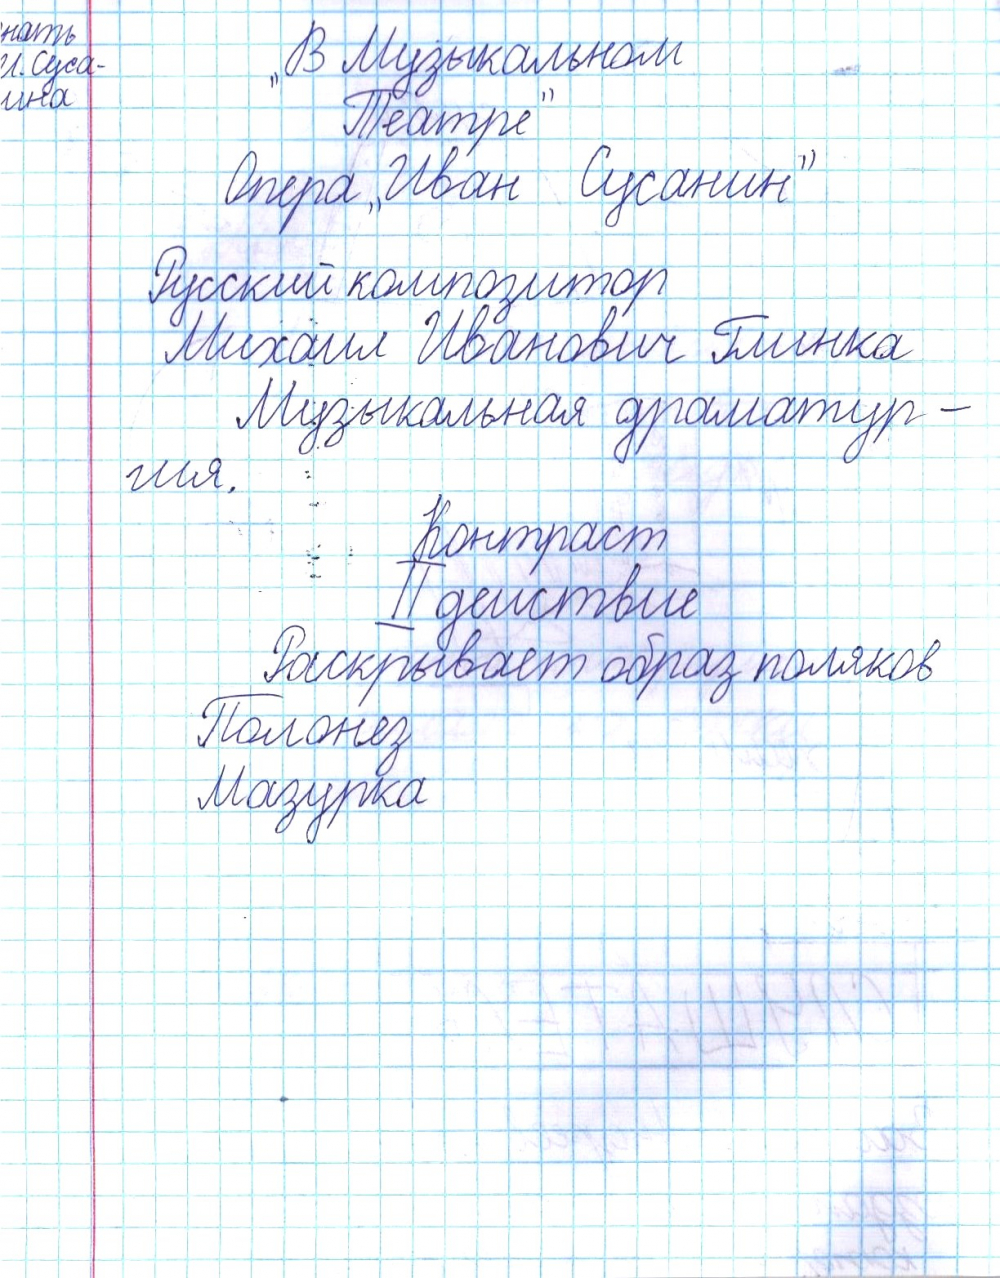 нать
И. Суса-
нина
„В Музыкальном
Театре”
Опера „Иван Сусанин”
Русский композитор
Михаил Иванович Глинка
Музыкальная драматур-
гия.
Контраст
II действие
Раскрывает образ поляков
Полонез
Мазурка